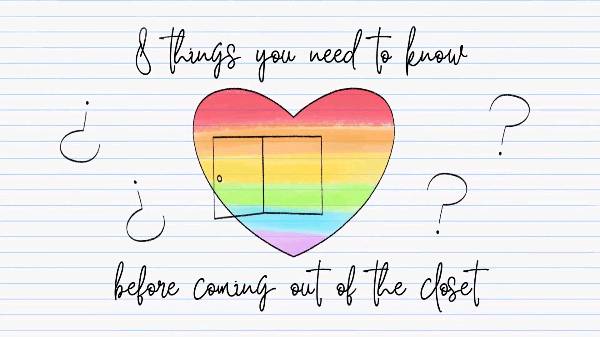 8 things you need to know
¿ ?
¿ ?
before coming out of the closet